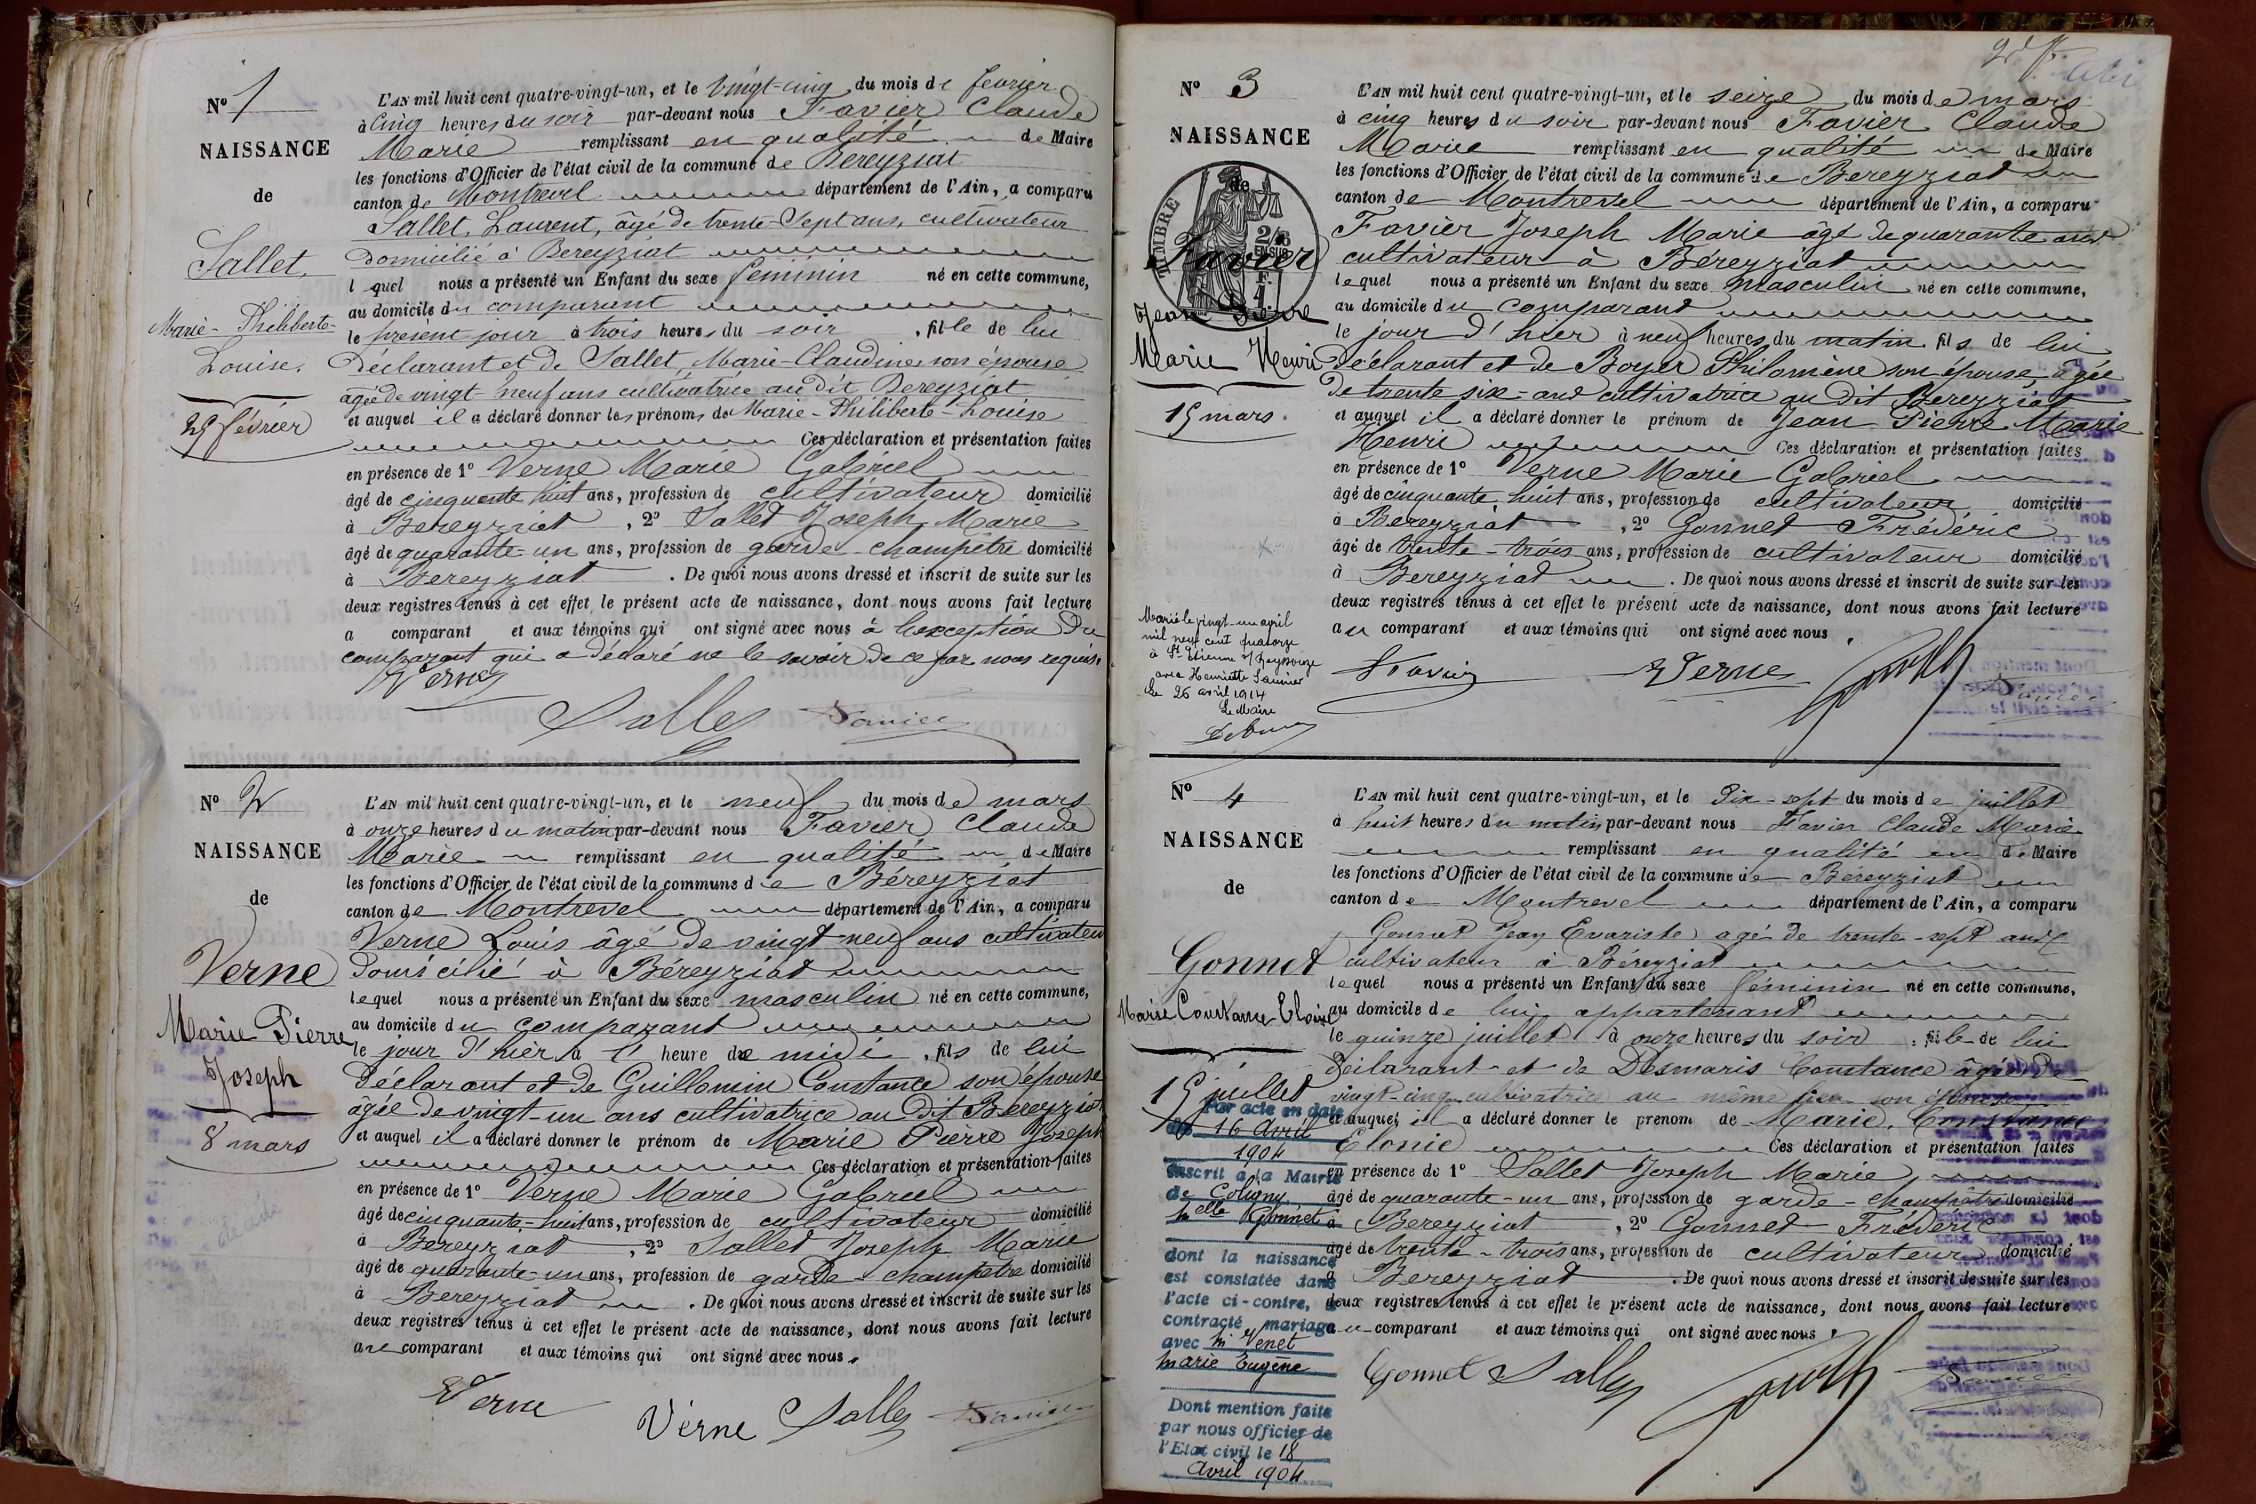 N° 1
NAISSANCE
de
Sallet,
Marie-Philiberte-
Louise,
25 février
L'AN mil huit cent quatre-vingt-un, et le vingt-cinq du mois de février
à Cinq heures du soir par-devant nous Favier Claude
Marie remplissant en qualité de Maire
les fonctions d'Officier de l'état civil de la commune de Bereyziat
canton de Montrevel département de l'Ain, a comparu
Sallet, Laurent, âgé de trente-sept ans, cultivateur
domicilié à Bereyziat
lequel nous a présenté un Enfant du sexe féminin né en cette commune,
au domicile du comparant
le présent jour à trois heures du soir, fille de lui
déclarant et de Sallet, Marie-Claudine, son épouse
âgée de vingt-neuf ans cultivatrice au dit Bereyziat
et auquel il a déclaré donner les prénoms de Marie-Philiberte-Louise
Ces déclaration et présentation faites
en présence de 1° Verne Marie Gabriel
âgé de cinquante huit ans, profession de cultivateur domicilié
à Bereyziat, 2° Sallet Joseph Marie
âgé de quarante-un ans, profession de garde-champêtre domicilié
à Bereyziat. De quoi nous avons dressé et inscrit de suite sur les
deux registres tenus à cet effet le présent acte de naissance, dont nous avons fait lecture
a comparant et aux témoins qui ont signé avec nous à l'exception du
comparant qui a déclaré ne le savoir de ce par nous requis.
Verne
Sallet Favier
N° 2
NAISSANCE
de
Verne
Marie Pierre
Joseph
8 mars
L'AN mil huit cent quatre-vingt-un, et le neuf du mois de mars
à onze heures du matin par-devant nous Favier Claude
Marie remplissant en qualité de Maire
les fonctions d'Officier de l'état civil de la commune de Béreyziat
canton de Montrevel département de l'Ain, a comparu
Verne Louis âgé de vingt-neuf ans cultivateur
domicilié à Béreyziat
lequel nous a présenté un Enfant du sexe masculin né en cette commune,
au domicile du comparant
le jour d'hier à l' heure de midi, fils de lui
déclarant et de Guillomin Constance son épouse
âgée de vingt-un ans cultivatrice au dit Bereyziat
et auquel il a déclaré donner le prénom de Marie Pierre Joseph
Ces déclaration et présentation faites
en présence de 1° Verne Marie Gabriel
âgé de cinquante-huit ans, profession de cultivateur domicilié
à Bereyziat, 2° Sallet Joseph Marie
âgé de quarante-un ans, profession de garde-champêtre domicilié
à Bereyziat. De quoi nous avons dressé et inscrit de suite sur les
deux registres tenus à cet effet le présent acte de naissance, dont nous avons fait lecture
au comparant et aux témoins qui ont signé avec nous.
Verne
Verne Sallet Favier
N° 3
NAISSANCE
de
TIMBRE
2/10
EN SUS
F.
Favier
Jean Pierre
Marie Henri
15 mars.
Marié le vingt-un avril
mil neuf cent quatorze
à St Etienne s/ Reyssouze
avec Henriette Saunier
Le 26 avril 1914
Le Maire
L'AN mil huit cent quatre-vingt-un, et le seize du mois de mars
à cinq heures du soir par-devant nous Favier Claude
Marie remplissant en qualité de Maire
les fonctions d'Officier de l'état civil de la commune de Bereyziat
canton de Montrevel département de l'Ain, a comparu
Favier Joseph Marie âgé de quarante ans
cultivateur à Béreyziat
lequel nous a présenté un Enfant du sexe masculin né en cette commune,
au domicile du comparant
le jour d'hier à neuf heures du matin fils de lui
déclarant et de Boyer Philomène son épouse, âgée
de trente six-ans cultivatrice au dit Bereyziat
et auquel il a déclaré donner le prénom de Jean Pierre Marie
Henri Ces déclaration et présentation faites
en présence de 1° Verne Marie Gabriel
âgé de cinquante huit ans, profession de cultivateur domicilié
à Bereyziat, 2° Gonnet Frédéric
âgé de trente-trois ans, profession de cultivateur domicilié
à Bereyziat. De quoi nous avons dressé et inscrit de suite sur les
deux registres tenus à cet effet le présent acte de naissance, dont nous avons fait lecture
au comparant et aux témoins qui ont signé avec nous.
Favier Verne
N° 4
NAISSANCE
de
Gonnet
Marie Constance Elonie
15 juillet
Par acte en date
du 16 Avril
1904
inscrit à la Mairie
de Coligny
Melle Gonnet
dont la naissance
est constatée dans
l'acte ci-contre, a
contracté mariage
avec Mr Venet
Marie Eugène
Dont mention faite
par nous officier de
l'Etat civil le 18
Avril 1904
L'AN mil huit cent quatre-vingt-un, et le Dix-sept du mois de juillet
à huit heures du matin par-devant nous Favier Claude Marie
remplissant en qualité de Maire
les fonctions d'Officier de l'état civil de la commune de Bereyziat
canton de Montrevel département de l'Ain, a comparu
Gonnet Jean Evariste âgé de trente-sept ans
cultivateur à Bereyziat
lequel nous a présenté un Enfant du sexe féminin né en cette commune,
au domicile de lui appartenant
le quinze juillet à onze heures du soir, fille de lui
déclarant et de Desmaris Constance âgée de
vingt-cinq cultivatrice au même lieu son épouse
et auquel il a déclaré donner le prenom de Marie, Constance
Elonie Ces déclaration et présentation faites
en présence de 1° Sallet Joseph Marie,
âgé de quarante-un ans, profession de garde-champêtre domicilié
à Bereyziat, 2° Gonnet Frédéric
âgé de trente-trois ans, profession de cultivateur domicilié
à Bereyziat. De quoi nous avons dressé et inscrit de suite sur les
deux registres tenus à cet effet le présent acte de naissance, dont nous avons fait lecture
au comparant et aux témoins qui ont signé avec nous.
Gonnet Sallet